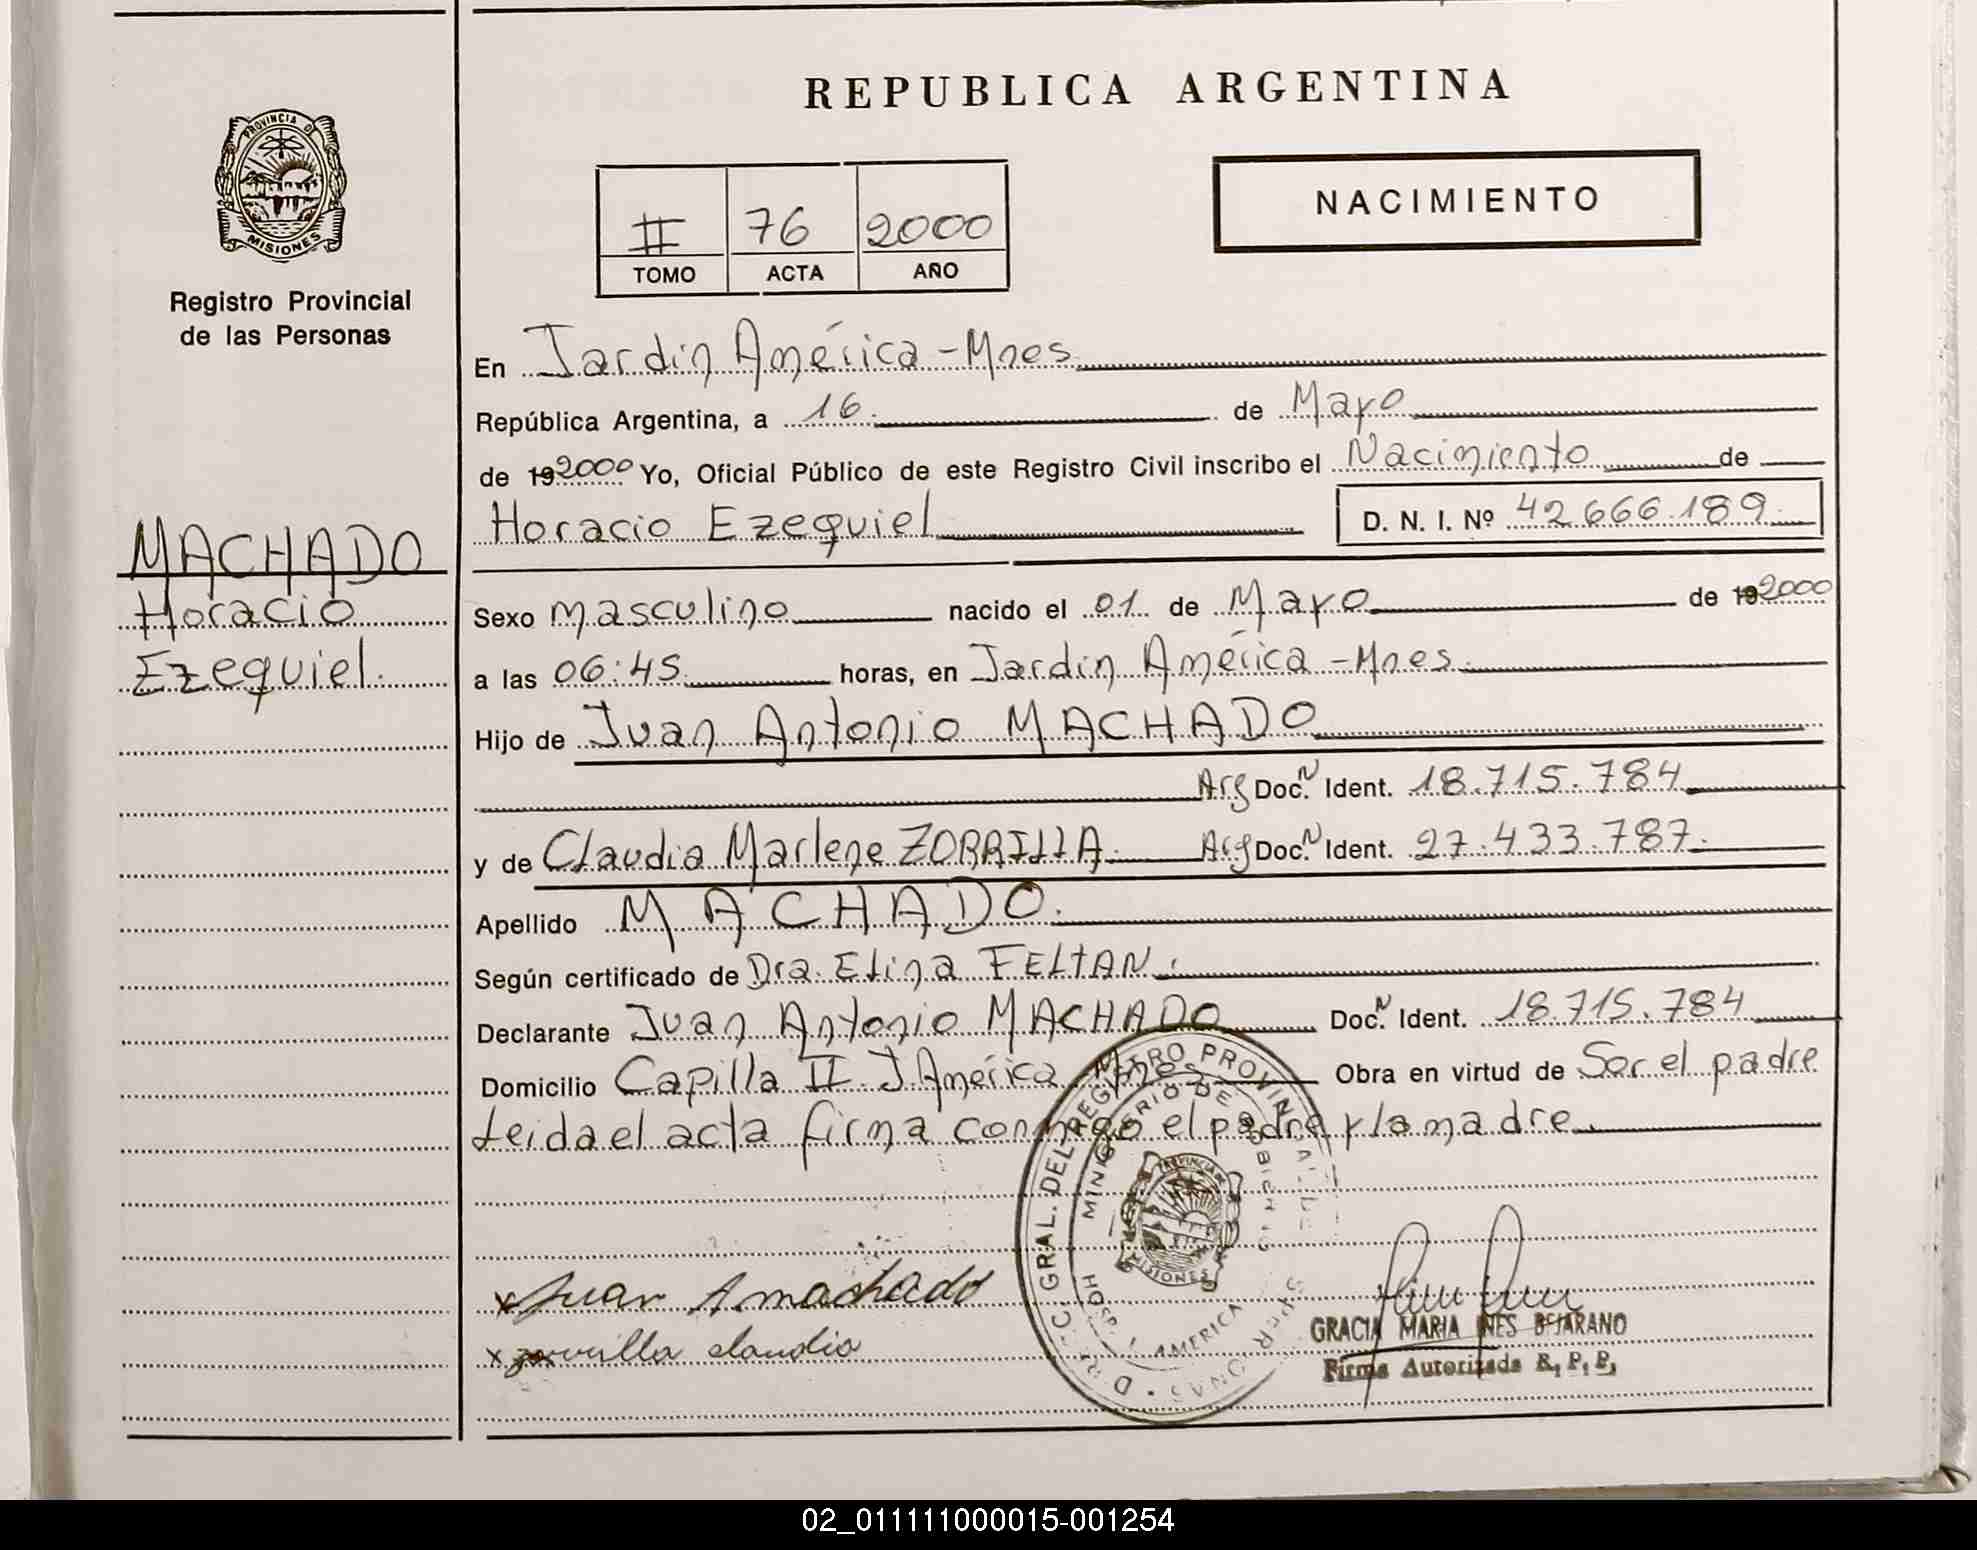 REPUBLICA ARGENTINA
PROVINCIA DE
MISIONES
Registro Provincial
de las Personas
II 76 2000
TOMO ACTA AÑO
NACIMIENTO
En Jardín América - Mnes
República Argentina, a 16 de Mayo
de 19 2000 Yo, Oficial Público de este Registro Civil inscribo el Nacimiento de
Horacio Ezequiel D. N. I. Nº 42.666.189
MACHADO
Horacio
Ezequiel.
Sexo masculino nacido el 01 de Mayo de 19 2000
a las 06:45 horas, en Jardín América - Mnes.
Hijo de Juan Antonio MACHADO
Arg Doc. N Ident. 18.715.784
y de Claudia Marlene ZORRILLA Arg Doc. N Ident. 27.433.787.
Apellido MACHADO.
Según certificado de Dra. Elina FELTAN.
Declarante Juan Antonio MACHADO Doc. N Ident. 18.715.784
Domicilio Capilla II J. América Mnes Obra en virtud de Ser el padre
Leida el acta firma conmigo el padre y la madre
x Juan A machado
x zorrilla claudia
DIREC. GRAL. DEL REGISTRO PROVINCIAL DE PERSONAS
MINISTERIO DE GOBIERNO
PROVINCIA DE
MISIONES
AMERICA
GRACIA MARIA INES BEJARANO
Firma Autorizada R. P. P.
02_011111000015-001254